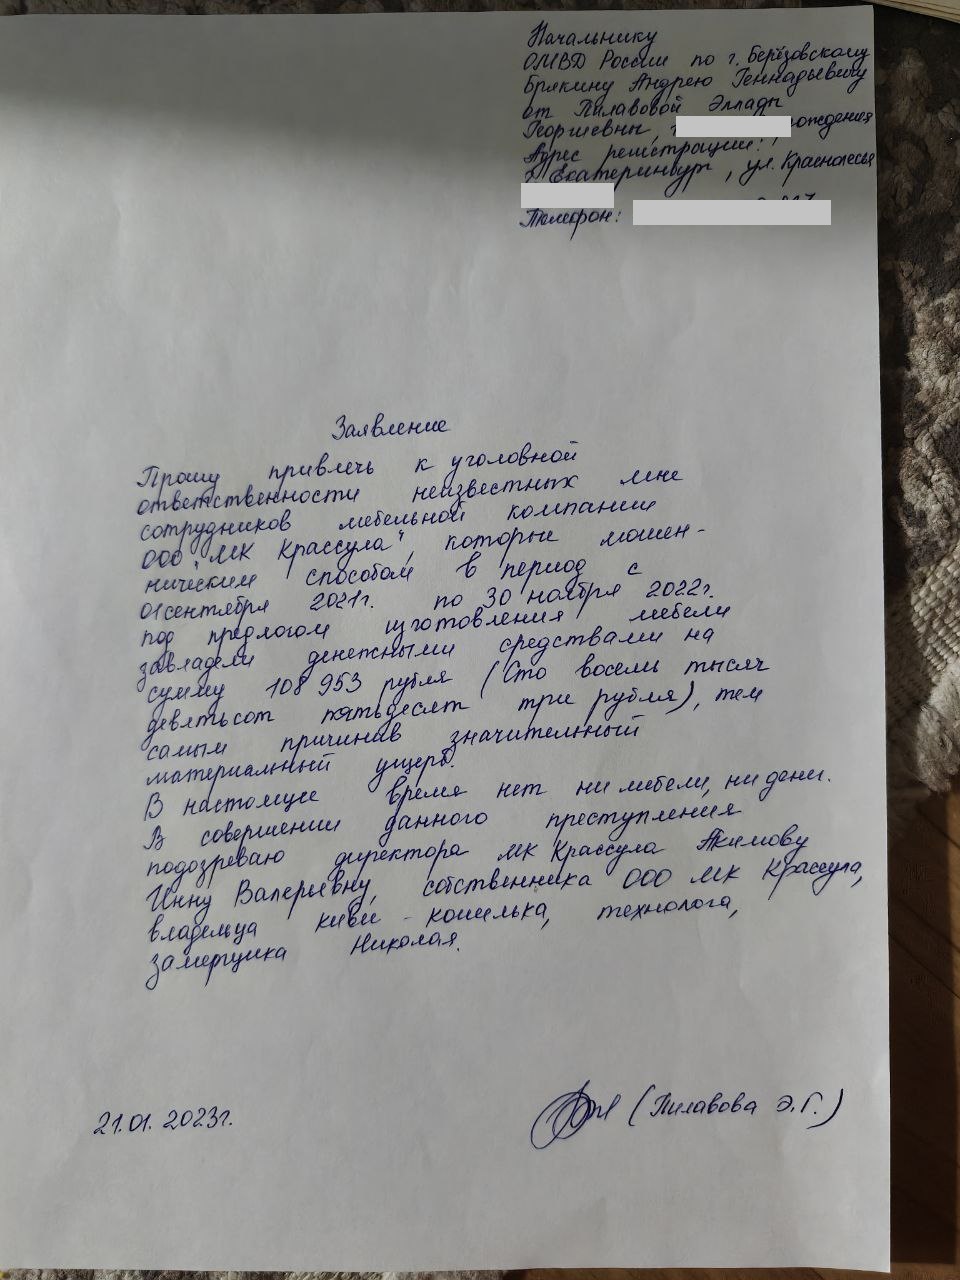 Начальнику
ОМВД России по г. Берёзовскому
Брякину Андрею Геннадьевичу
от Пилавовой Эллады
Георгиевны, рождения
Адрес регистрации:
г. Екатеринбург, ул. Краснолесья
Телефон:
Заявление
Прошу привлечь к уголовной
ответственности неизвестных мне
сотрудников мебельной компании
ООО "МК Крассула", которые мошен-
ническим способом в период с
01 сентября 2021г. по 30 ноября 2022г.
под предлогом изготовления мебели
завладели денежными средствами на
сумму 108 953 рубля (Сто восемь тысяч
девятьсот пятьдесят три рубля), тем
самым причинив значительный
материальный ущерб.
В настоящее время нет ни мебели, ни денег.
В совершении данного преступления
подозреваю директора МК Крассула Акимову
Инну Валерьевну, собственника ООО МК Крассула,
владельца киви-кошелька, технолога,
замерщика Николая.
21.01.2023г. (Пилавова Э.Г.)